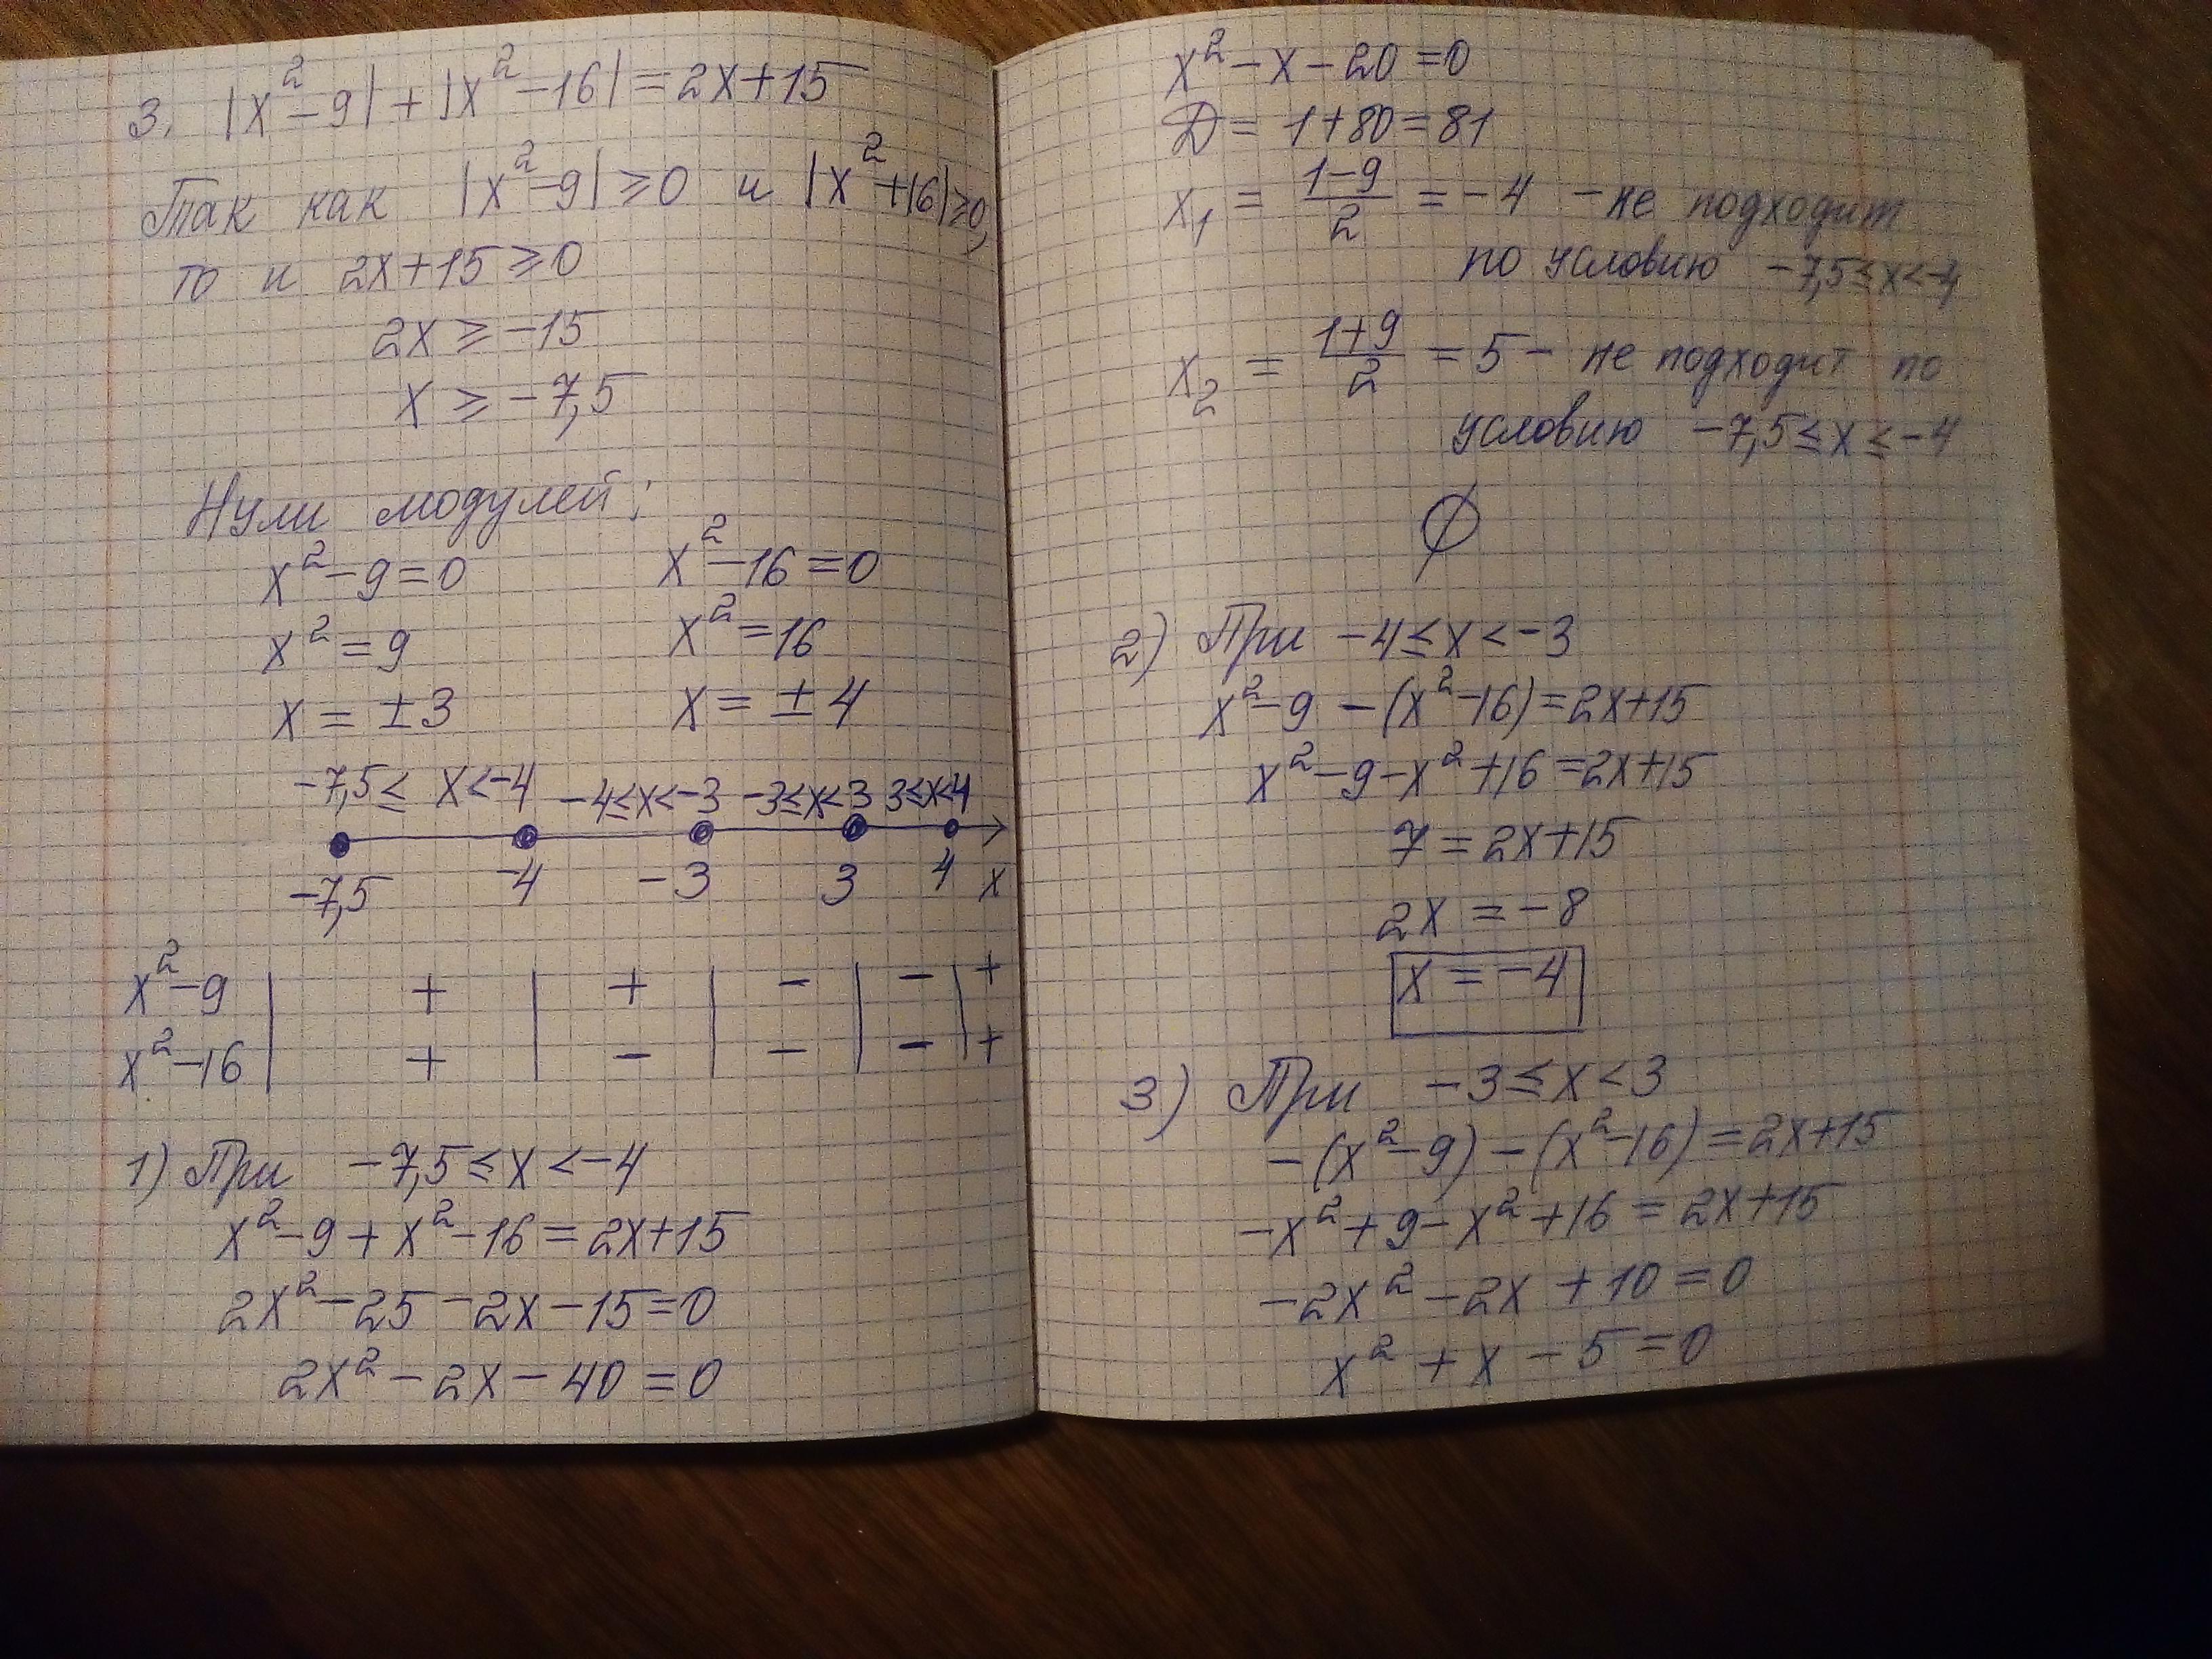 3. |x²-9|+|x²-16|=2x+15
Так как |x²-9|⩾0 и |x²+16|⩾0,
то и 2x+15⩾0
2x⩾-15
x⩾-7,5
Нули модулей:
x²-9=0 x²-16=0
x²=9 x²=16
x=±3 x=±4
-7,5≤x<-4 -4≤x<-3 -3≤x<3 3≤x<4
-7,5 -4 -3 3 4 x
x²-9 | + | + | - | - | +
x²-16 | + | - | - | - | +
1) При -7,5≤x<-4
x²-9+x²-16=2x+15
2x²-25-2x-15=0
2x²-2x-40=0
x²-x-20=0
Д=1+80=81
x₁=(1-9)/2=-4 - не подходит
по условию -7,5≤x<-4
x₂=(1+9)/2=5 - не подходит по
условию -7,5≤x≤-4
∅
2) При -4≤x<-3
x²-9-(x²-16)=2x+15
x²-9-x²+16=2x+15
7=2x+15
2x=-8
x=-4
3) При -3≤x<3
-(x²-9)-(x²-16)=2x+15
-x²+9-x²+16=2x+15
-2x²-2x+10=0
x²+x-5=0